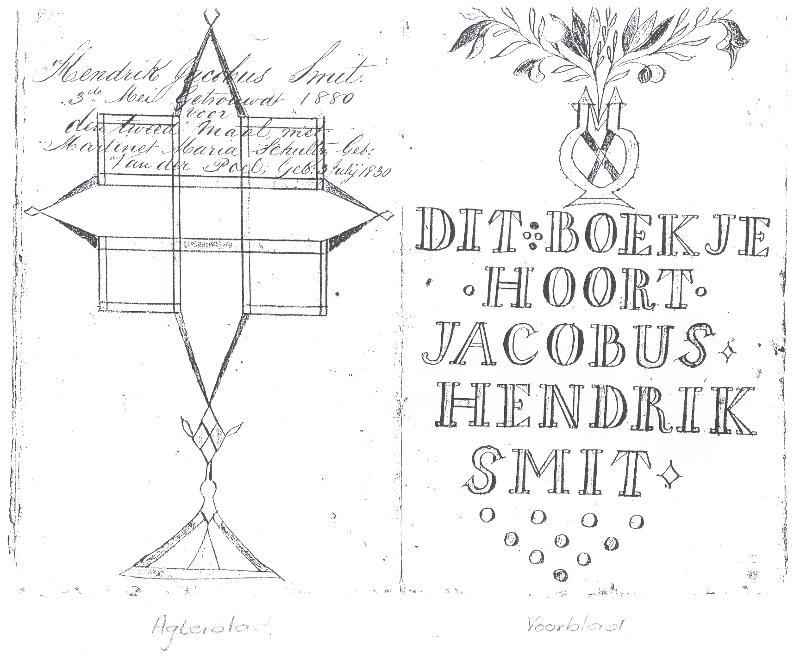 Hendrik Jacobus Smit.
3de Mei Getrouwdt 1880
voor
den tweed Maal met
Martinet Maria Schultz Geb:
Van der Poel; Geb: 3 Julij 1830
DIT BOEKJE
HOORT
JACOBUS
HENDRIK
SMIT
Agterblad
Voorblad